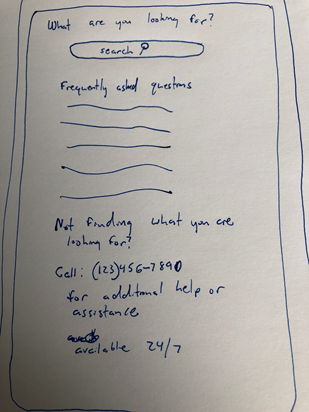 What are you looking for?
search
Frequently asked questions
Not finding what you are
looking for?
Call: (123)456-7890
for additional help or
assistance
available 24/7